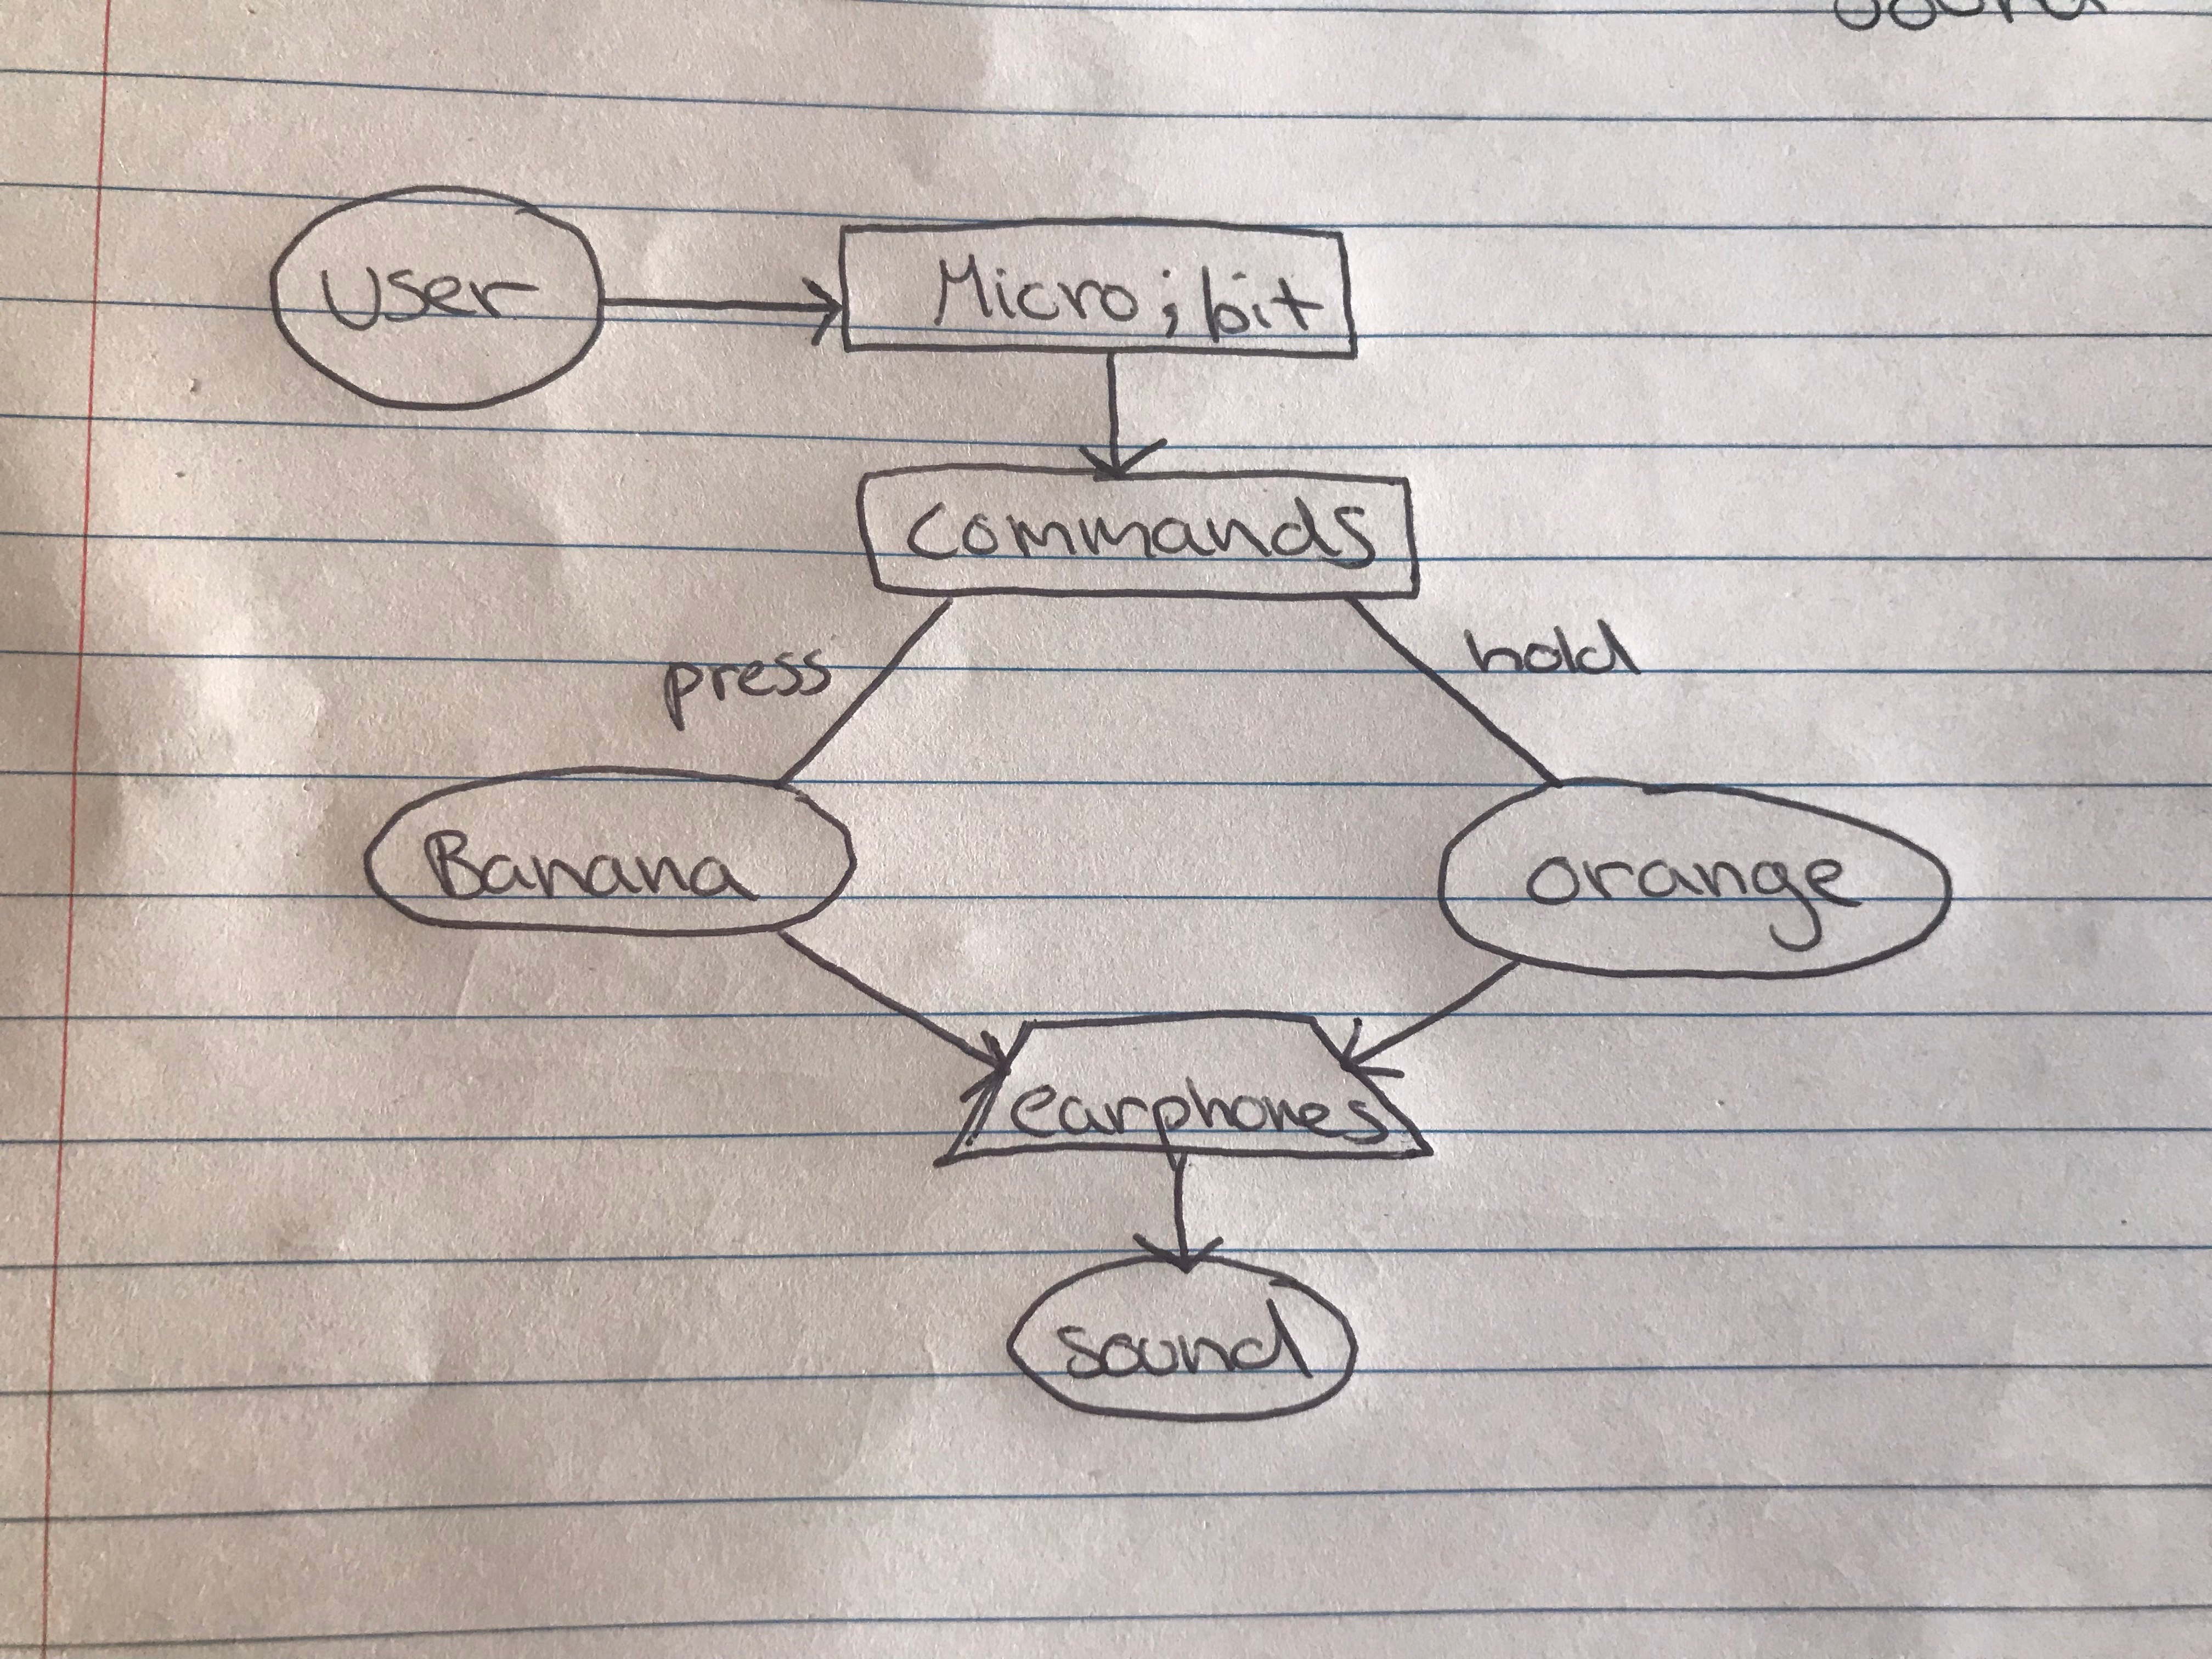 User
Micro;bit
commands
press
hold
Banana
orange
earphones
sound